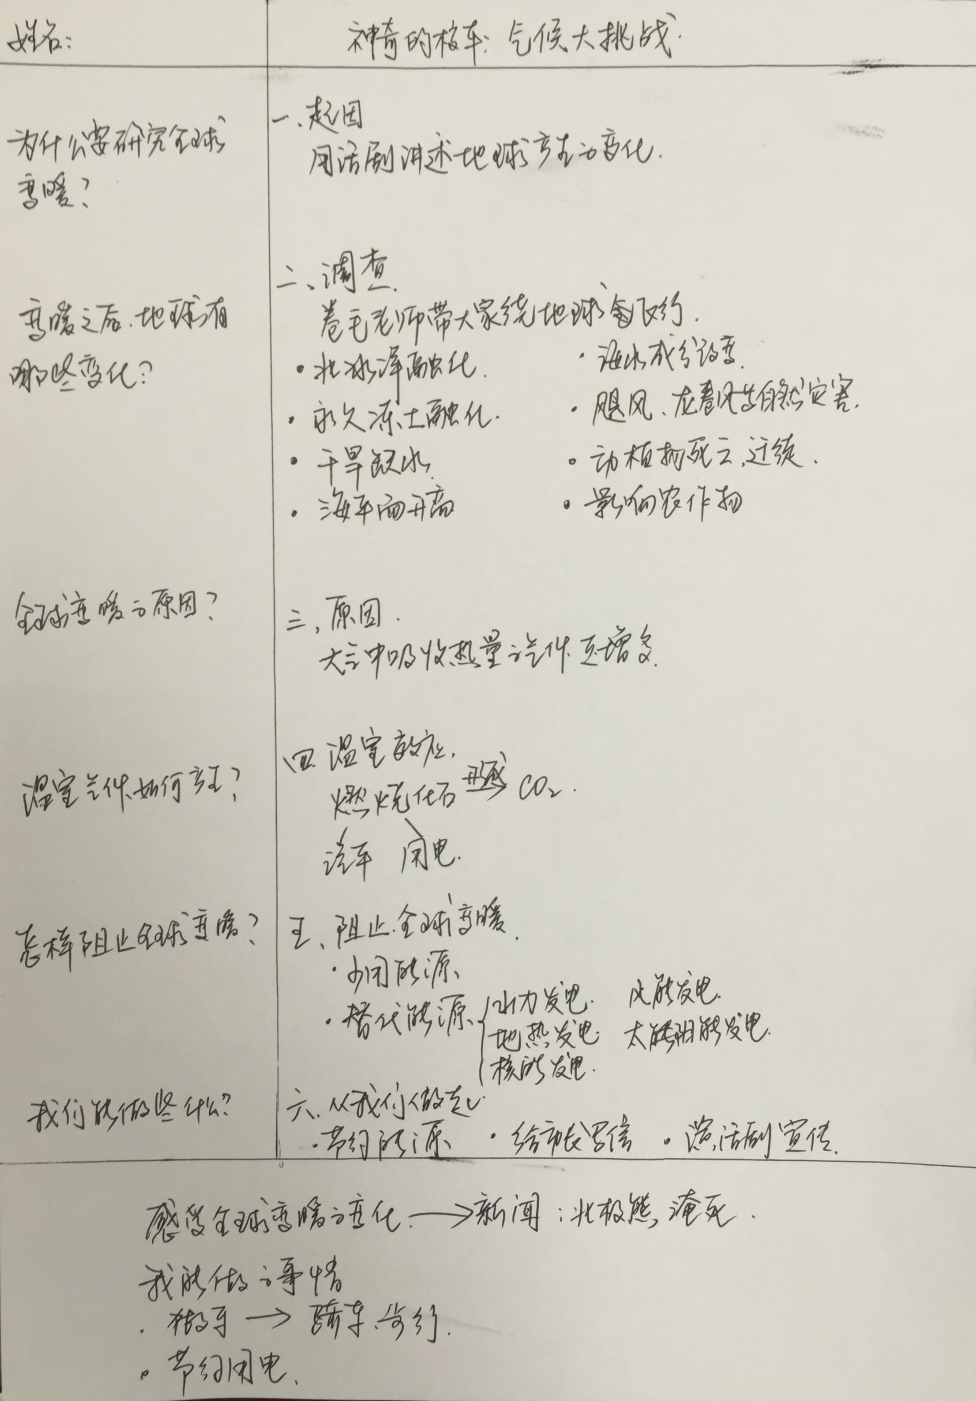 姓名：
神奇的校车：气候大挑战.
为什么要研究全球
变暖？
一、起因
用话剧讲述地球产生的变化.
变暖之后，地球有
哪些变化？
二、调查.
卷毛老师带大家绕地球飞行.
·北冰洋融化.
·海水成分改变.
·永久冻土融化.
·飓风、龙卷风等自然灾害.
·干旱缺水.
·动植物死亡、迁徙.
·海平面升高
·影响农作物
全球变暖的原因？
三、原因.
大气中吸收热量的气体在增多.
温室气体如何产生？
四、温室效应.
燃烧化石 形成→ CO₂.
汽车 用电.
怎样阻止全球变暖？
五、阻止全球变暖.
·少用能源、
·替代能源 水力发电. 风能发电.
地热发电. 太阳能发电.
核能发电.
我们能做些什么？
六、从我们做起.
·节约能源、 ·给市长写信 ·演话剧宣传.
感受全球变暖的变化. → 新闻：北极熊淹死.
我能做的事情
·做车 → 骑车、步行.
·节约用电.